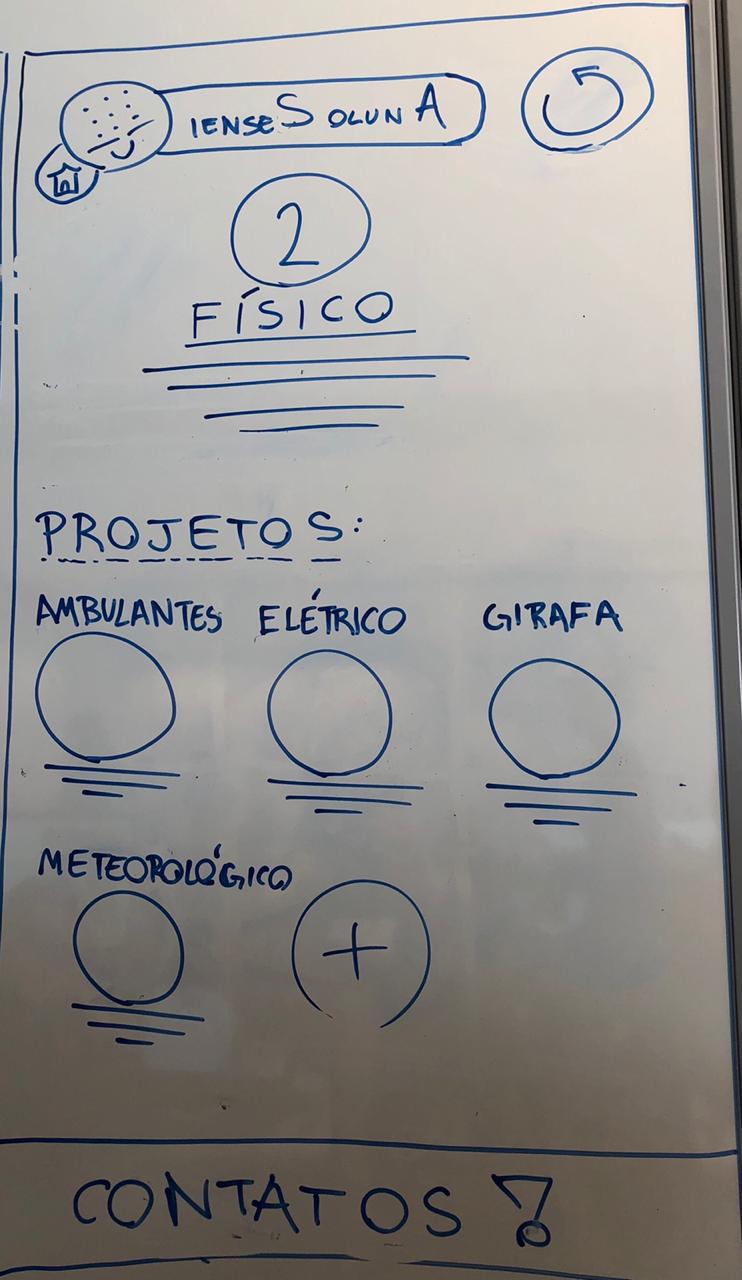 IENSE SOLUNA
2
FÍSICO
PROJETOS:
AMBULANTES ELÉTRICO GIRAFA
METEOROLÓGICO
+
CONTATOS!